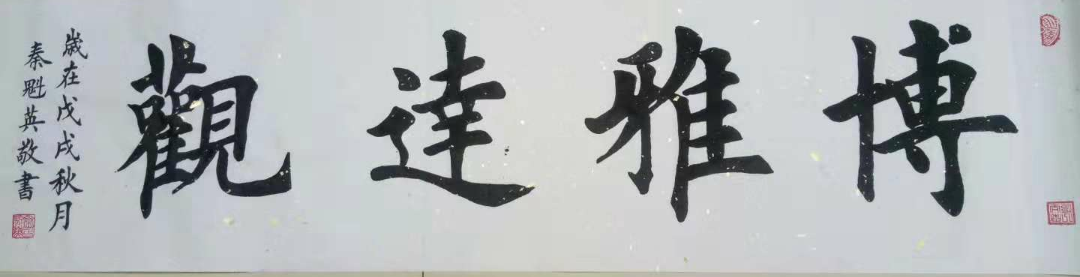 博雅達觀
歲在戊戌秋月
秦魁英敬書